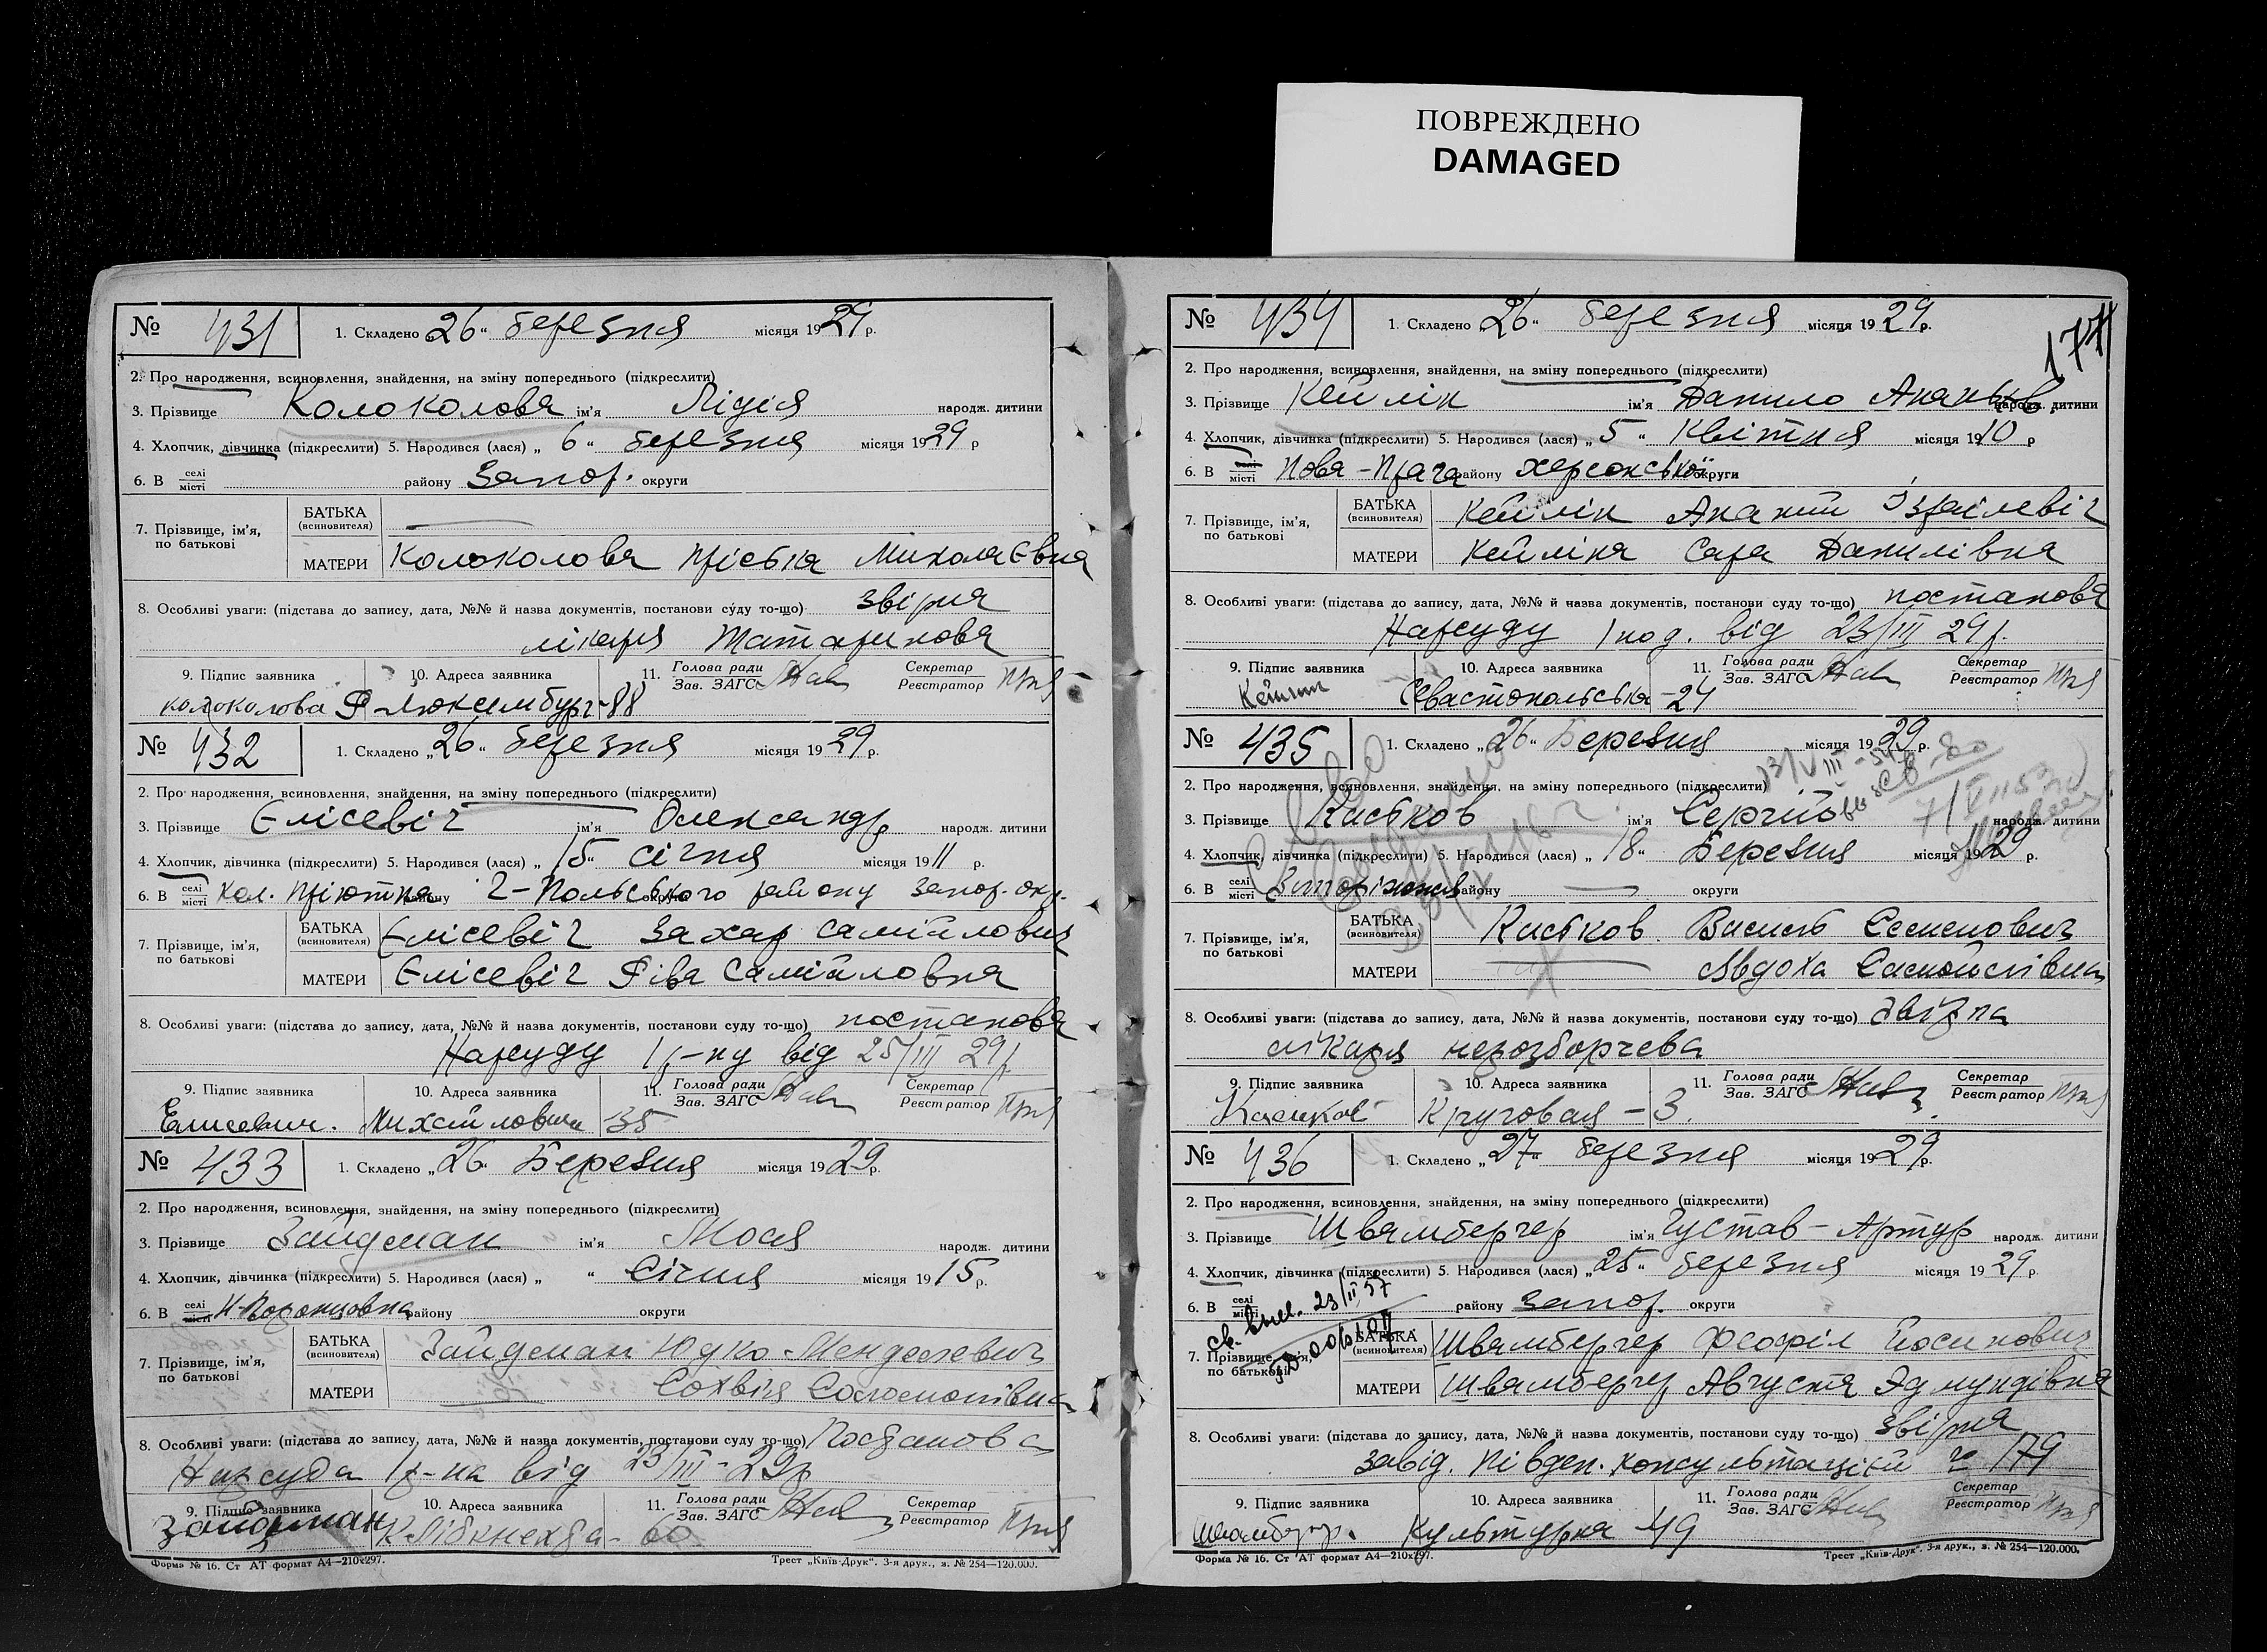 ПОВРЕЖДЕНО
DAMAGED
№ 431 1. Складено 26 " березня місяця 1929 р.
2. Про народження, всиновлення, знайдення, на зміну попереднього (підкреслити)
3. Прізвище Колоколова ім'я Лідія народж. дитини
4. Хлопчик, дівчинка (підкреслити) 5. Народився (лася) „ 6 " березня місяця 1929 р
6. В селі місті району Запор. округи
7. Прізвище, ім'я, по батькові БАТЬКА (всиновителя) —
МАТЕРИ Колоколова Миколаєвна
8. Особливі уваги: (підстава до запису, дата, №№ й назва документів, постанови суду то-що) звірка
лікаря Татаринова
9. Підпис заявника 10. Адреса заявника 11. Голова ради Зав. ЗАГС Секретар Реєстратор
Колоколова Р Люксембург-88
№ 432 1. Складено „26" березня місяця 1929 р.
2. Про народження, всиновлення, знайдення, на зміну попереднього (підкреслити)
3. Прізвище Єлісевіч ім'я Олександр народж. дитини
4. Хлопчик, дівчинка (підкреслити) 5. Народився (лася) „ 15" січня місяця 1911 р.
6. В селі місті Кол. Пріютна району 2-Польського району Запор. окр. округи
7. Прізвище, ім'я, по батькові БАТЬКА (всиновителя) Єлісевіч Захар Самійлович
МАТЕРИ Єлісевіч Ріва Самійловна
8. Особливі уваги: (підстава до запису, дата, №№ й назва документів, постанови суду то-що) постанова
Нарсуду 1 р-ну від 25/III 29 р.
9. Підпис заявника 10. Адреса заявника 11. Голова ради Зав. ЗАГС Секретар Реєстратор
Елисевич. 35
№ 433 1. Складено „26" Березня місяця 1929 р.
2. Про народження, всиновлення, знайдення, на зміну попереднього (підкреслити)
3. Прізвище Зайдман ім'я Мося народж. дитини
4. Хлопчик, дівчинка (підкреслити) 5. Народився (лася) „ " Січня місяця 1915 р.
6. В селі місті Н-Воронцовка району округи
7. Прізвище, ім'я, по батькові БАТЬКА (всиновителя) Зайдман Юдко-Менделевич
МАТЕРИ — Софвія Соломонівна
8. Особливі уваги: (підстава до запису, дата, №№ й назва документів, постанови суду то-що) Постанова
Нарсуда 1 р-на від 23/III-29р
9. Підпис заявника 10. Адреса заявника 11. Голова ради Зав. ЗАГС Секретар Реєстратор
Зайдман К Лібкнехта-60
Форма № 16. Ст АТ формат А4—210x297. Трест „Київ-Друк". 3-я друк., з. № 254—120.000.
177
№ 434 1. Складено 26 " березня місяця 1929 р.
2. Про народження, всиновлення, знайдення, на зміну попереднього (підкреслити)
3. Прізвище Кейлін ім'я Данило Ананьєв народж. дитини
4. Хлопчик, дівчинка (підкреслити) 5. Народився (лася) „ 5 " Квітня місяця 1910 р
6. В селі місті Нова-Прага району херсонської округи
7. Прізвище, ім'я, по батькові БАТЬКА (всиновителя) Кейлін Ананий Ізраілевіч
МАТЕРИ Кейліна Сара Данилівна
8. Особливі уваги: (підстава до запису, дата, №№ й назва документів, постанови суду то-що) постанова
Нарсуду 1 від 23/III 29 р.
9. Підпис заявника 10. Адреса заявника 11. Голова ради Зав. ЗАГС Секретар Реєстратор
Кейлин Севастопольська-24
№ 435 1. Складено „26" Березня місяця 1929 р.
2. Про народження, всиновлення, знайдення, на зміну попереднього (підкреслити)
3. Прізвище ім'я Сергій народж. дитини
4. Хлопчик, дівчинка (підкреслити) 5. Народився (лася) „ 18 " Березня місяця 1929 р.
6. В селі місті Запоріжжя району — округи
7. Прізвище, ім'я, по батькові БАТЬКА (всиновителя) Семенович
МАТЕРИ — Авдоха
8. Особливі уваги: (підстава до запису, дата, №№ й назва документів, постанови суду то-що) звірка
лікаря нерозборчева
9. Підпис заявника 10. Адреса заявника 11. Голова ради Зав. ЗАГС Секретар Реєстратор
Круговая-3.
№ 436 1. Складено „27" березня місяця 1929 р.
2. Про народження, всиновлення, знайдення, на зміну попереднього (підкреслити)
3. Прізвище Швямбергер ім'я Густав-Артур народж. дитини
4. Хлопчик, дівчинка (підкреслити) 5. Народився (лася) „25" березня місяця 1929 р.
6. В селі місті району Запор. округи
23/II 57
7. Прізвище, ім'я, по батькові БАТЬКА (всиновителя) Швямбергер Феофіл Йосипович
МАТЕРИ Швямбергер Августя Эдмундівна
8. Особливі уваги: (підстава до запису, дата, №№ й назва документів, постанови суду то-що) звірка
завід. Південн. консультацієй № 179
9. Підпис заявника 10. Адреса заявника 11. Голова ради Зав. ЗАГС Секретар Реєстратор
Культурна 49
Форма № 16. Ст АТ формат А4—210x297. Трест „Київ-Друк". 3-я друк., з. № 254—120.000.